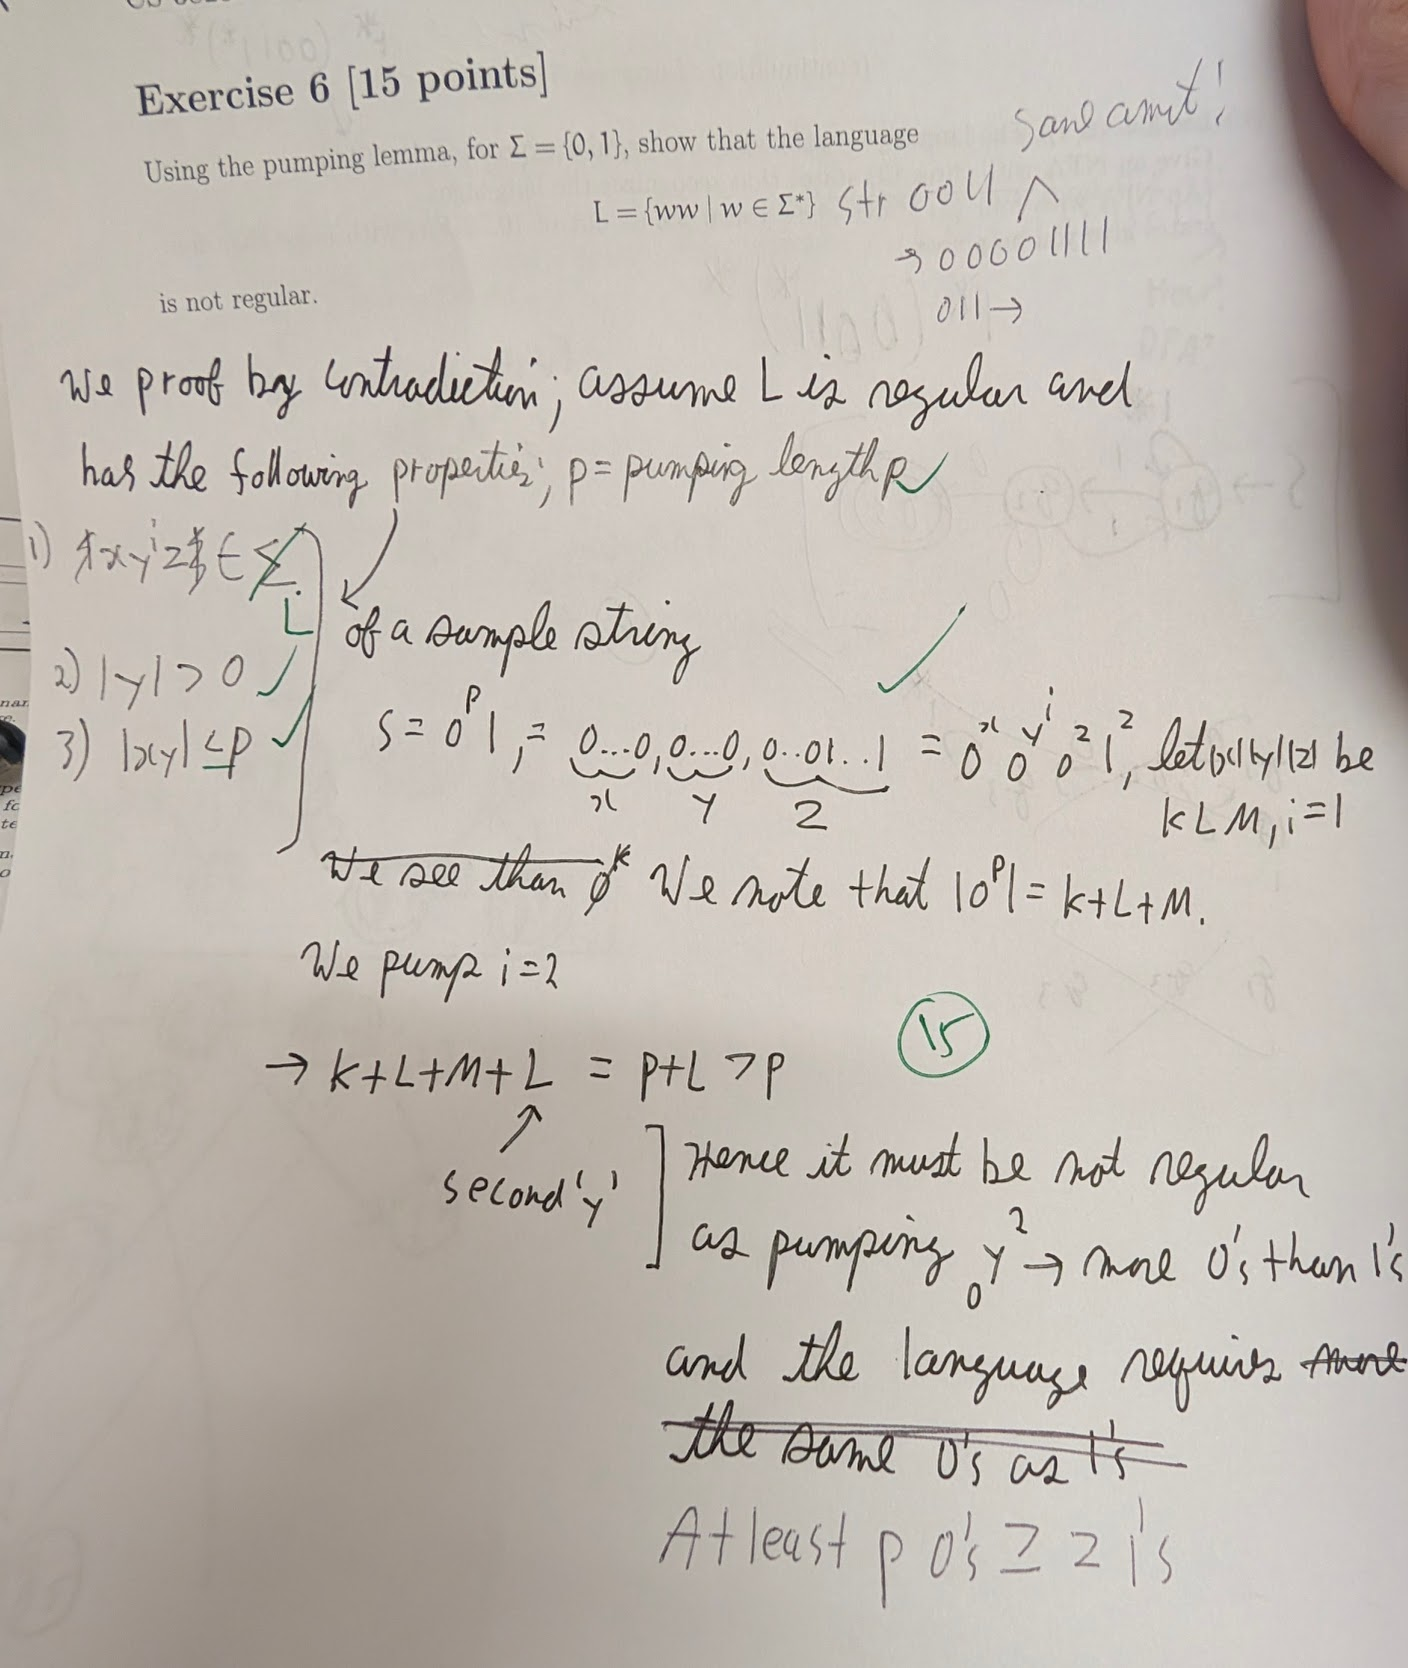 Exercise 6 [15 points]
Using the pumping lemma, for Σ = {0, 1}, show that the language
same amnt!
L = {ww | w ∈ Σ*} str 0011 ^
→ 00001111
is not regular.
011 →
We proof by contradiction; assume L is regular and
has the following properties; p = pumping length p ✓
1) xyⁱz ∈ Σ
L
of a sample string
2) |y| > 0 ✓
3) |xy| ≤ p ✓
S = 0ᵖ1, = 0...0, 0...0, 0..01..1 = 0ˣ 0ʸⁱ 0ᶻ 1ᶻ, let |x||y||z| be
x y z
K L M, i=1
We see than 0ᵏ We note that |0ᵖ| = K+L+M.
We pump i=2
15
→ K+L+M+L = P+L > P
second 'y'
Hence it must be not regular
as pumping 0ʸ² → more 0's than 1's
and the language requires more
the same 0's as 1's
At least p 0's ≥ z 1's